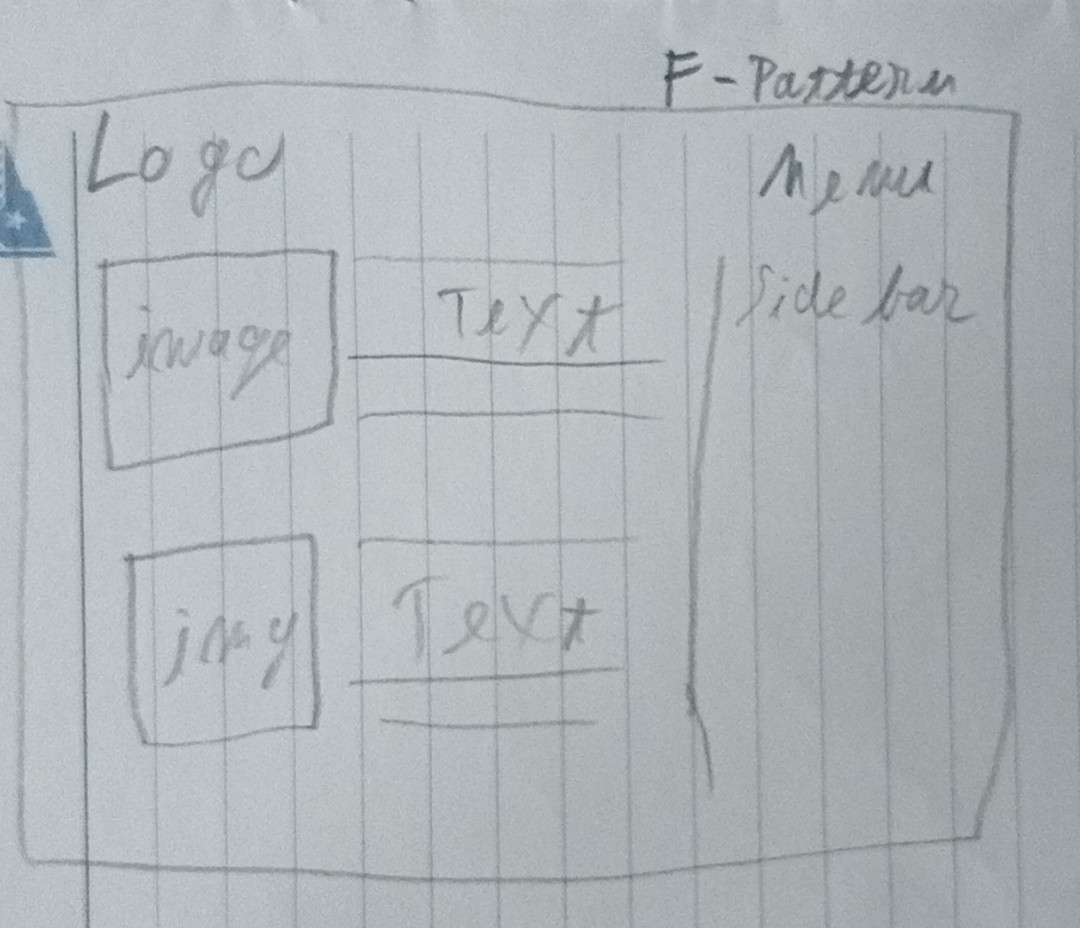 F-Pattern
Logo
Menu
image
Text
Side bar
img
Text